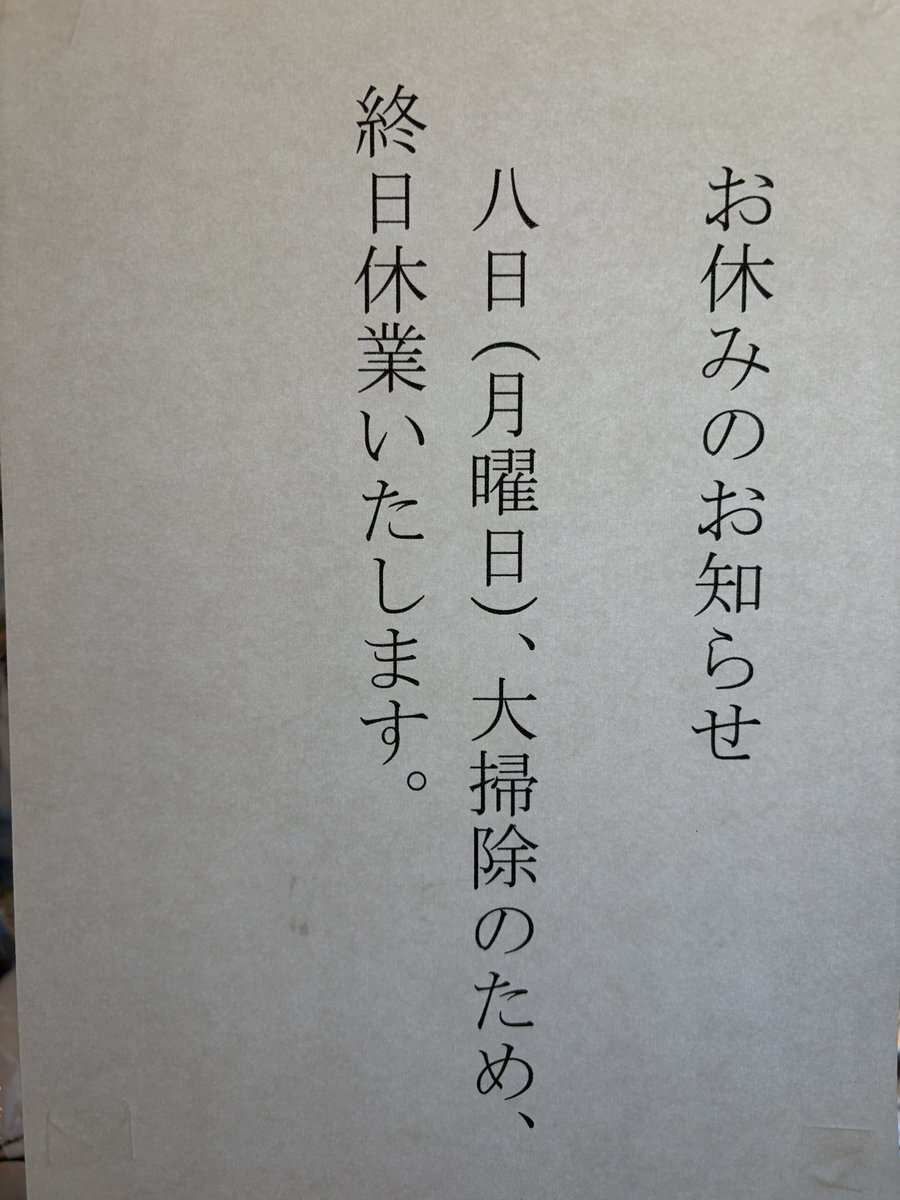 お休みのお知らせ
八日(月曜日)、大掃除のため、
終日休業いたします。